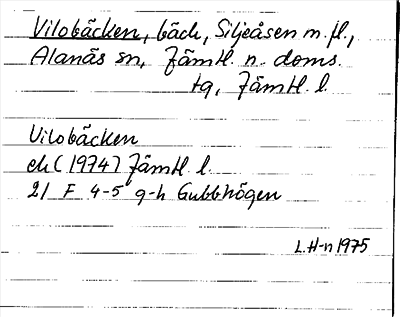 Vilobäcken, bäck, Siljeåsen m.fl.,
Alanäs sn, Jämtl. n. doms.
tg, Jämtl. l.
Vilobäcken
ek (1974) Jämtl l.
21 F 4-5 g-h Gubbhögen
L.H-n 1975